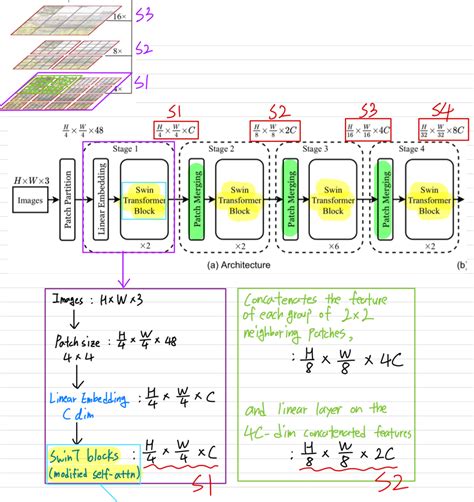 16× S3
8× S2
4× S1
S1 S2 S3 S4
H/4 × W/4 × 48 H/4 × W/4 × C H/8 × W/8 × 2C H/16 × W/16 × 4C H/32 × W/32 × 8C
Stage 1 Stage 2 Stage 3 Stage 4
H×W×3
Images
Patch Partition
Linear Embedding
Swin
Transformer
Block
×2
Patch Merging
Swin
Transformer
Block
×2
Patch Merging
Swin
Transformer
Block
×6
Patch Merging
Swin
Transformer
Block
×2
(a) Architecture (b)
Images : H×W×3
Patch size : H/4 × W/4 × 48
4 × 4
Linear Embedding : H/4 × W/4 × C
C dim
SwinT blocks : H/4 × W/4 × C
(modified self-attn) S1
Concatenates the feature
of each group of 2×2
neighboring patches,
: H/8 × W/8 × 4C
and linear layer on the
4C-dim concatenated features
: H/8 × W/8 × 2C
S2